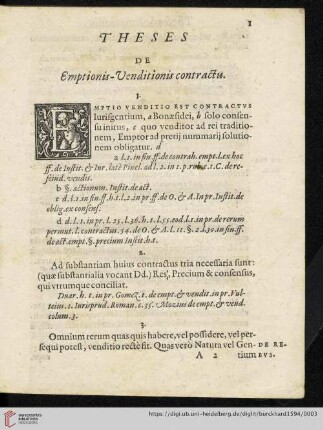 1
THESES
DE
Emptionis-Venditionis contractu.
1.
EMPTIO VENDITIO EST CONTRACTVS
Iurisgentium, a Bonæfidei, b solo consen-
su initus, c quo venditor ad rei traditio-
nem, Emptor ad precij nummarij solutio-
nem obligatur. d
a l.1. in fin. ff. de contrah. empt. l. ex hoc
ff. de Iustit. & Iur. latè Pinel. ad l.2. in 1. p. C. de re-
scind. vendit.
b §. actionum. Instit. de act.
c d.l.1. in fin. ff. h.t. l.2 in pr. ff. de O. & A. In pr. Instit. de
oblig. ex consens.
d d.l.1. in pr. l.25. l.36. h.t. l.55. eod. l.1. in pr. de rerum
permut. l. contractus. 54. de O. & A. l.11. §. 2. l.30. in fin. ff.
de act. empt. §. precium Instit. h.t.
2.
Ad substantiam huius contractus tria necessaria sunt:
(quæ substantialia vocant Dd.) Res, Precium & consensus,
qui vtrumque conciliat.
Duar. h.t. in pr. Gomez. t. de empt. & vendit. in pr. Vul-
teius. 1. Iurisprud. Roman. c.35. Mozius de empt. & vend.
colum. 3.
3.
Omnium rerum quas quis habere, vel possidere, vel per-
sequi potest, venditio rectè fit. Quas verò Natura vel Gen- DE RE-
A 2 tium BVS.
https://digi.ub.uni-heidelberg.de/diglit/burckhard1594/0003